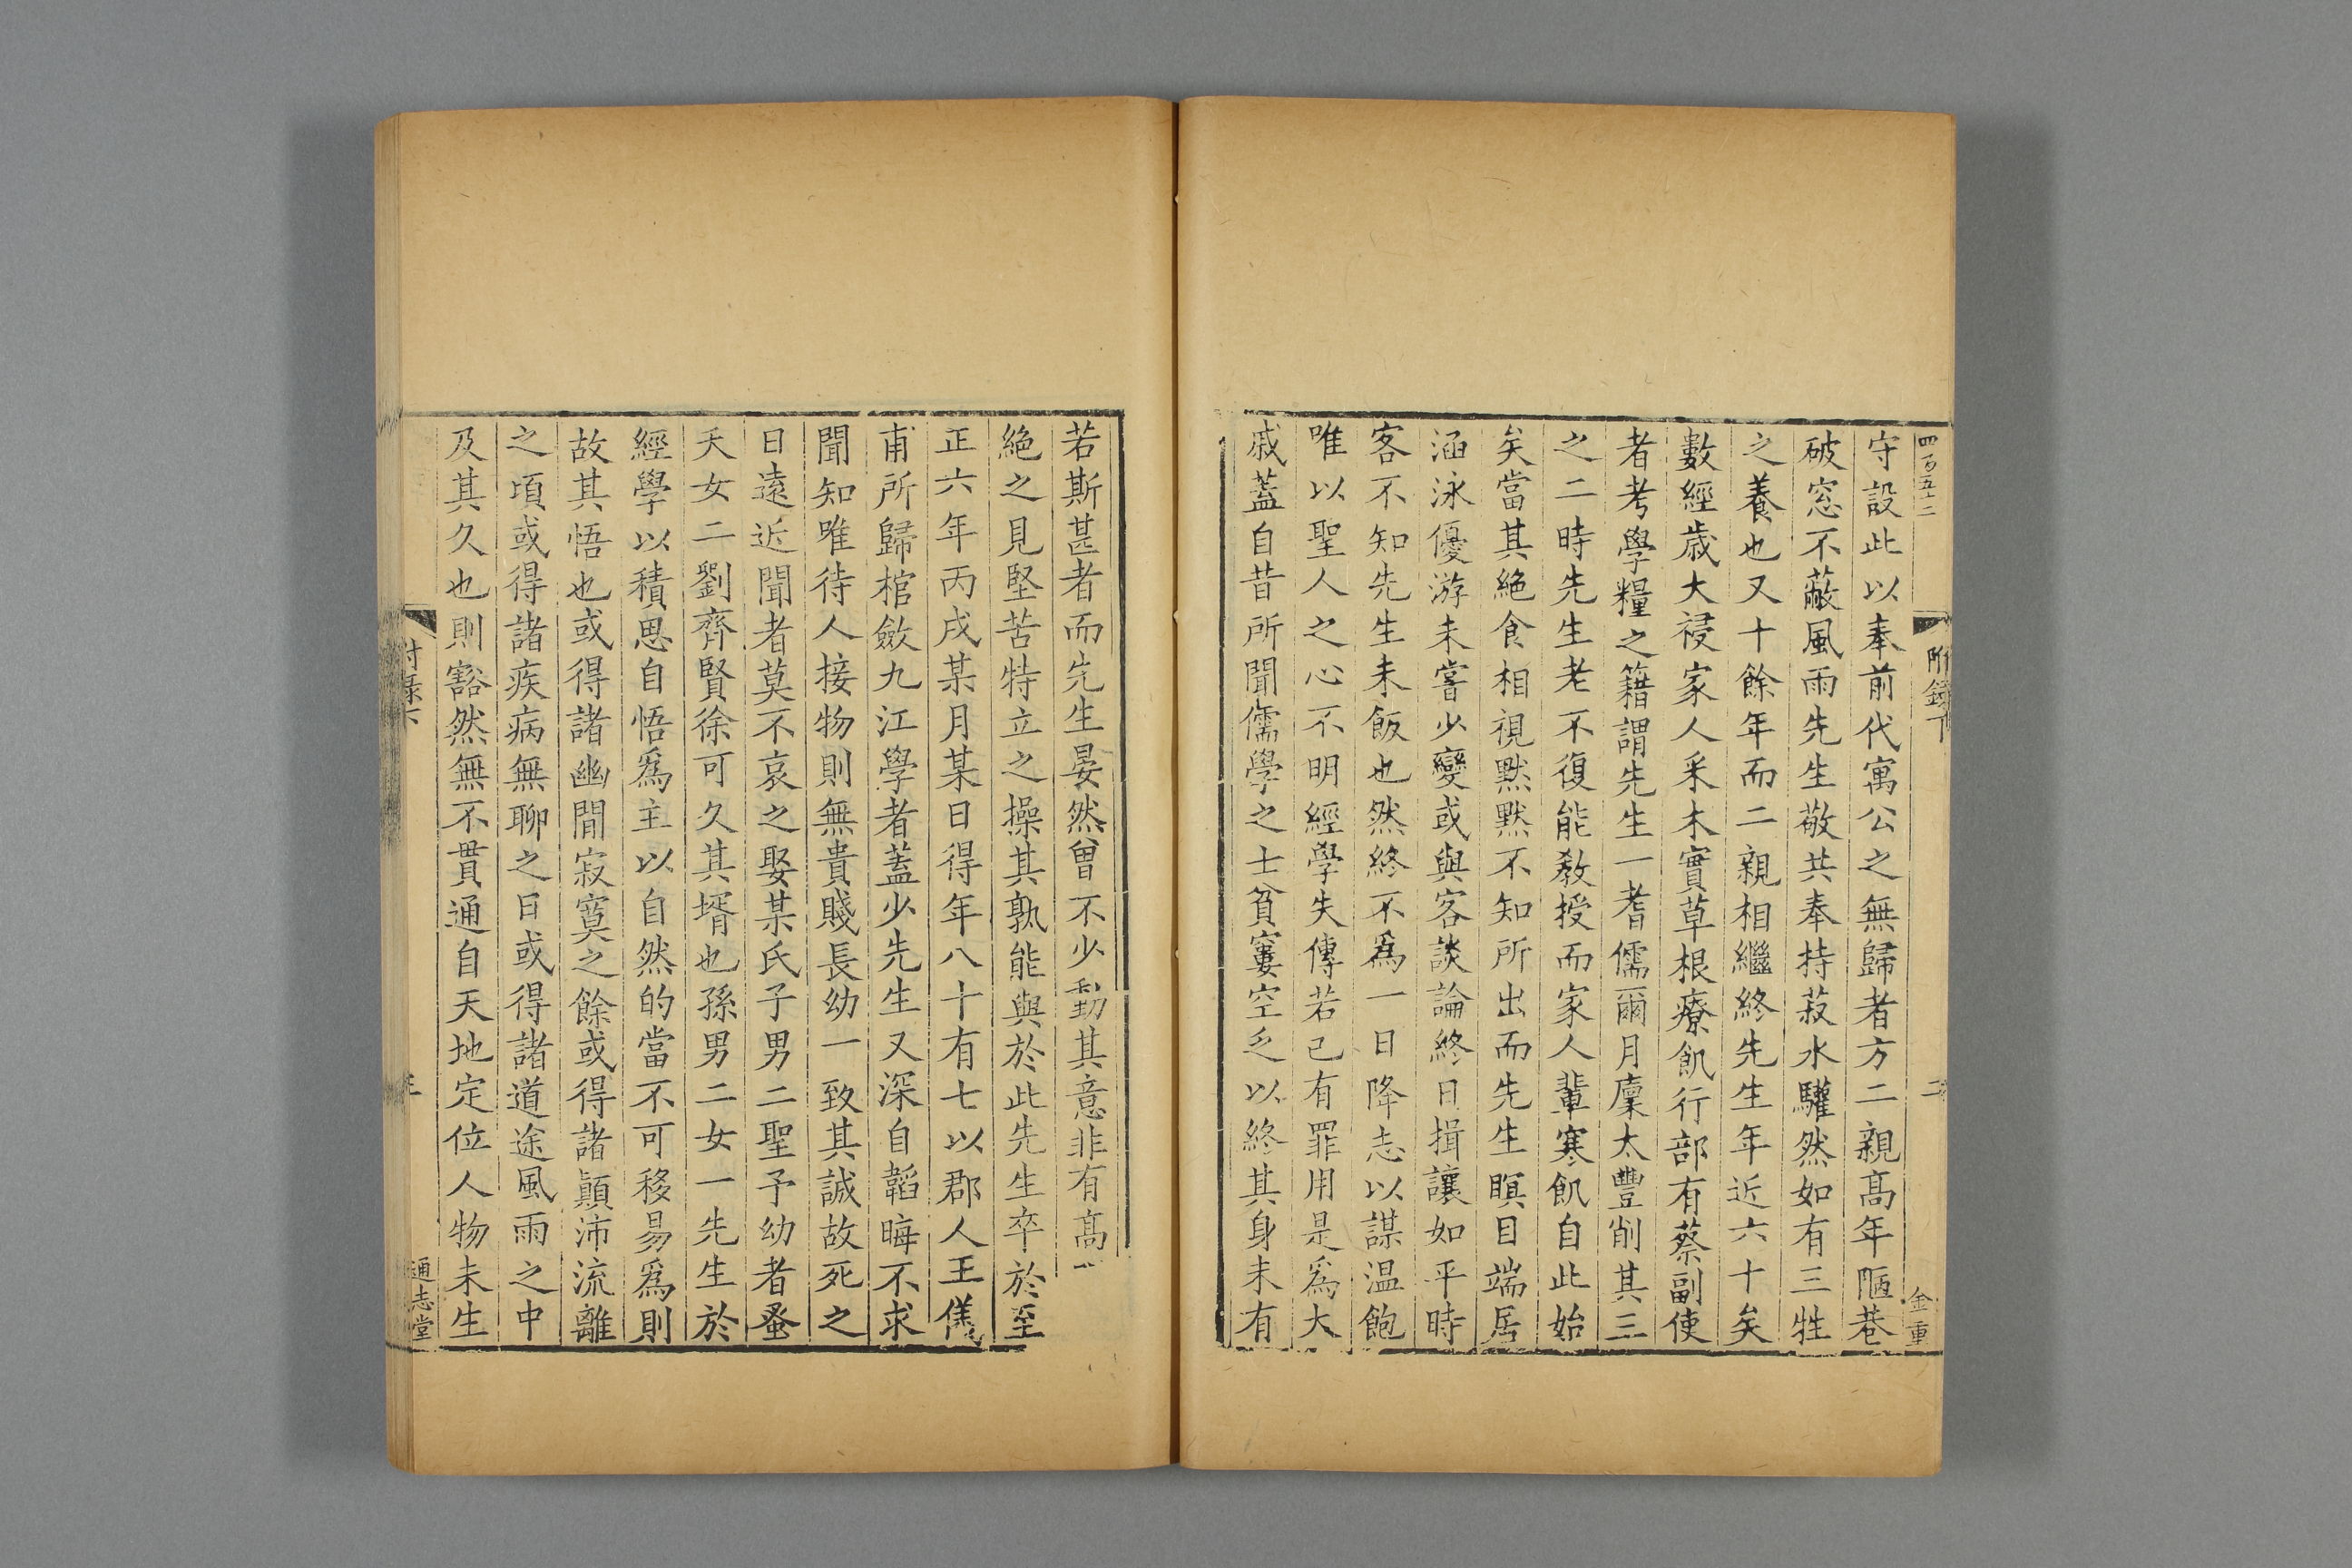 四百五十二
附錄下
二
金重
守設此以奉前代寓公之無歸者方二親高年陋巷
破窓不蔽風雨先生敬共奉持菽水驩然如有三牲
之養也又十餘年而二親相繼終先生年近六十矣
數經歲大祲家人采木實草根療飢行部有蔡副使
者考學糧之籍謂先生一耆儒爾月廩太豐削其三
之二時先生老不復能敎授而家人輩寒飢自此始
矣當其絕食相視默默不知所出而先生瞑目端居
涵泳優游未嘗少變或與客談論終日揖讓如平時
客不知先生未飯也然終不爲一日降志以謀温飽
唯以聖人之心不明經學失傳若己有罪用是爲大
戚蓋自昔所聞儒學之士貧窶空乏以終其身未有
若斯甚者而先生晏然曾不少動其意非有高
絕之見堅苦特立之操其孰能與於此先生卒於至
正六年丙戌某月某日得年八十有七以郡人王儀
甫所歸棺斂九江學者蓋少先生又深自韜晦不求
聞知唯待人接物則無貴賤長幼一致其誠故死之
日遠近聞者莫不哀之娶某氏子男二聖予幼者蚤
夭女二劉齊賢徐可久其壻也孫男二女一先生於
經學以積思自悟爲主以自然的當不可移易爲則
故其悟也或得諸幽閒寂寞之餘或得諸顚沛流離
之頃或得諸疾病無聊之日或得諸道途風雨之中
及其久也則豁然無不貫通自天地定位人物未生
附錄下
通志堂